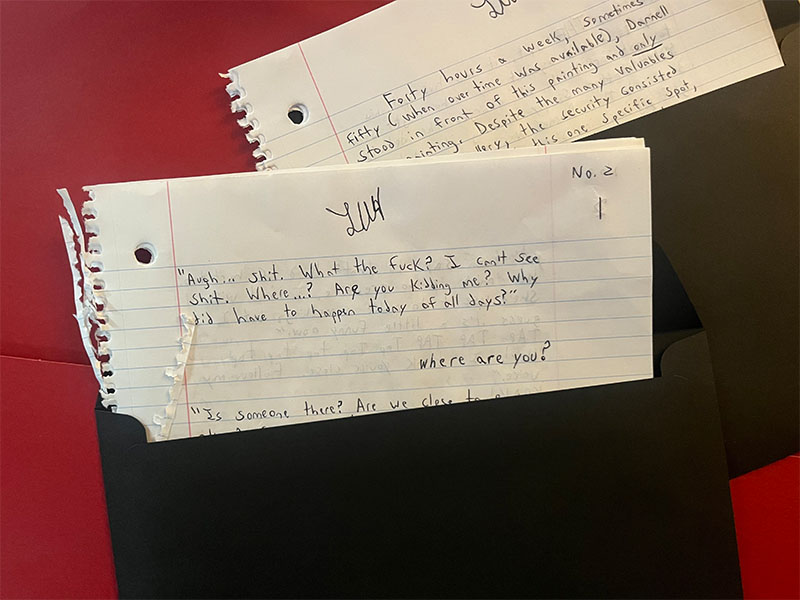 Forty hours a week, sometimes
fifty (when overtime was available), Darnell
stood in front of this painting and only
painting. Despite the many valuables
the security consisted
this one specific spot,
No. 2
1
"Augh... shit. What the fuck? I can't see
shit. Where...? Are you kidding me? Why
did have to happen today of all days?"
where are you?
"Is someone there? Are we close to